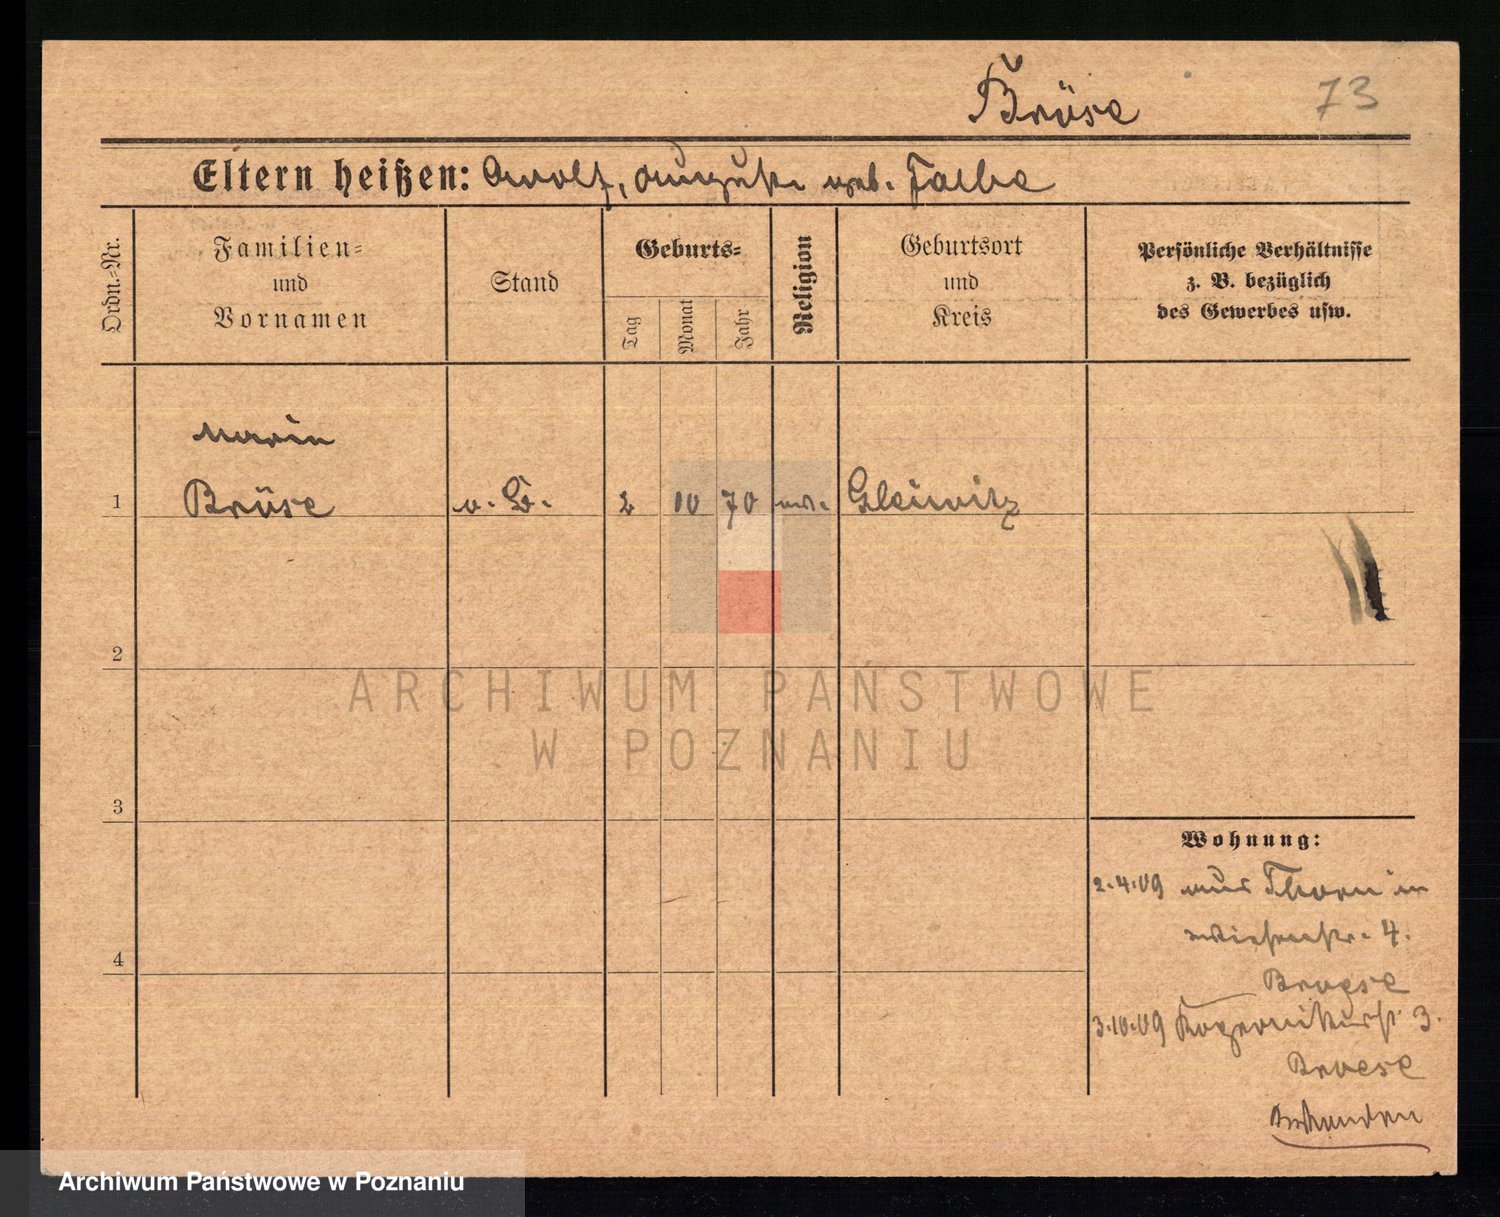 Bröse 73
Eltern heißen: Adolf, Auguste geb. Falbe
Ordn.-Nr.
Familien-
und
Vornamen
Stand
Geburts-
Tag
Monat
Jahr
Religion
Geburtsort
und
Kreis
Persönliche Verhältnisse
z. B. bezüglich
des Gewerbes usw.
Marie
1 Bröse o. G. 2 10 70 ev. Gleiwitz
2
3
4
Wohnung:
2.4.09 aus Thorn in
4.
Broese
3.10.09 3.
Broese
ARCHIWUM PAŃSTWOWE
W POZNANIU
Archiwum Państwowe w Poznaniu